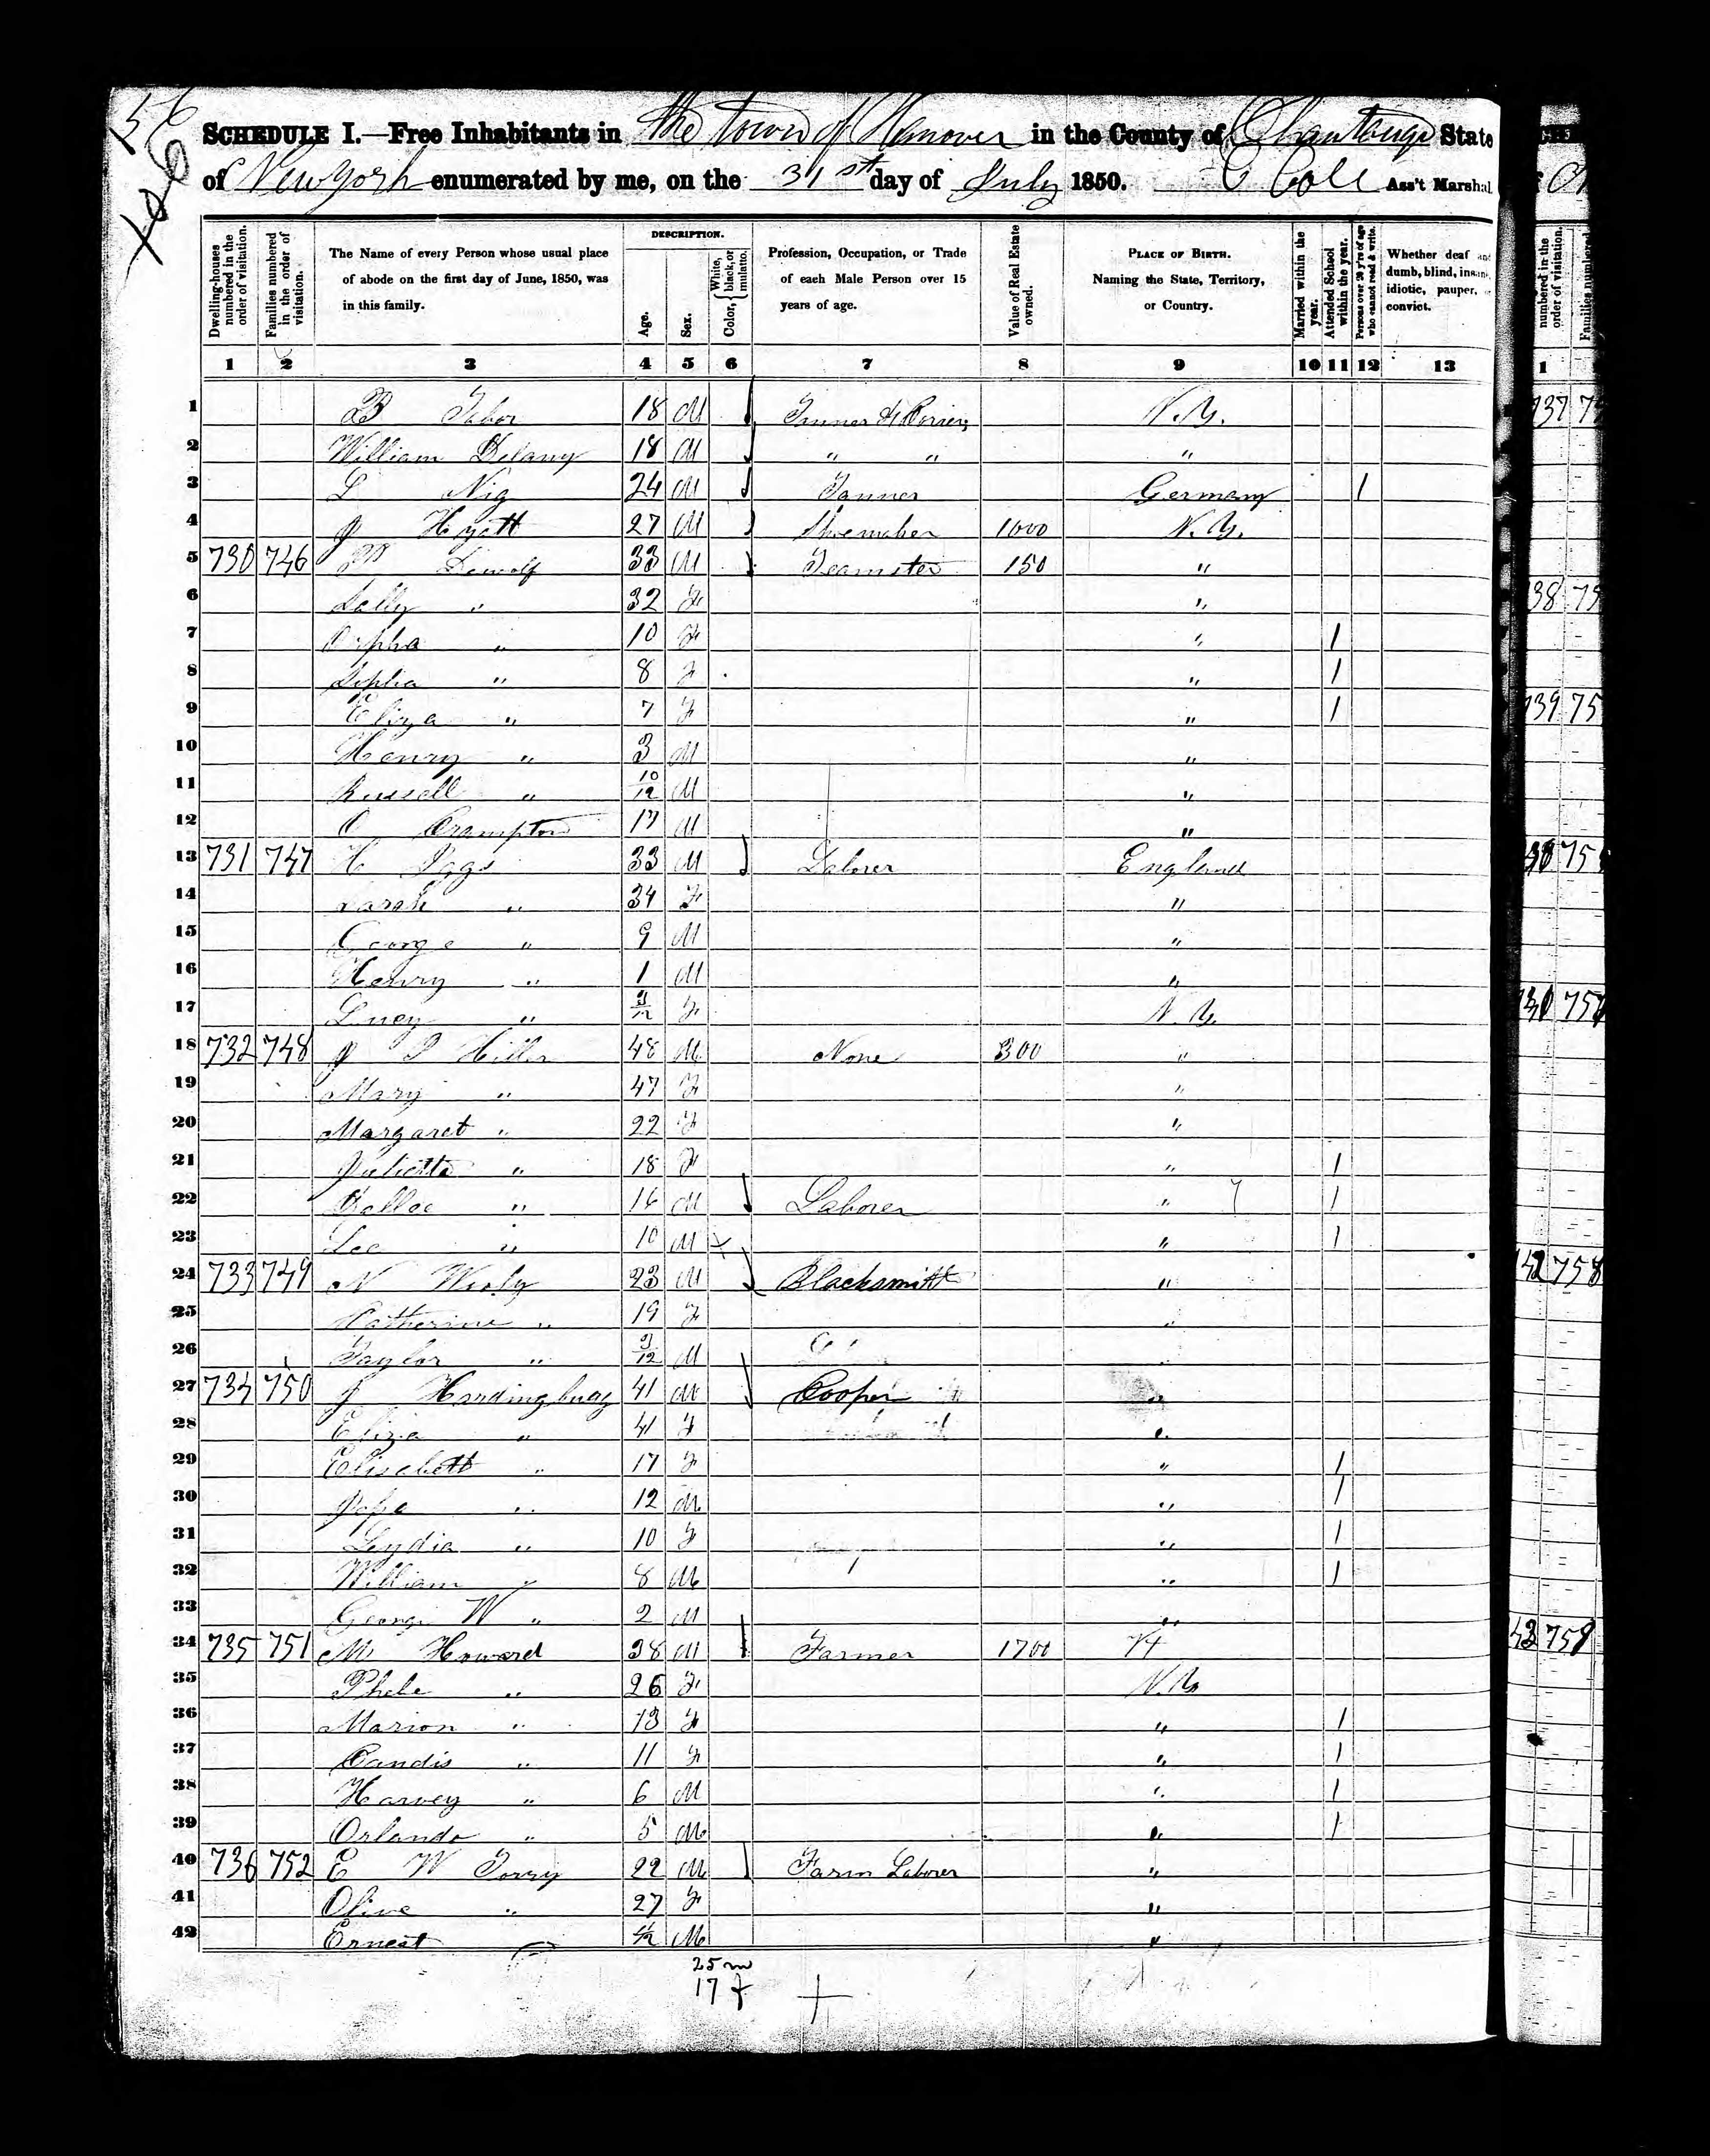 SCHEDULE I.—Free Inhabitants in the Town of Hanover in the County of Chautauqe State
of New York enumerated by me, on the 31st day of July 1850. C Cole Ass't Marshal
Dwelling-houses numbered in the order of visitation.
Families numbered in the order of visitation.
The Name of every Person whose usual place of abode on the first day of June, 1850, was in this family.
DESCRIPTION.
Age.
Sex.
Color, { White, black, or mulatto.
Profession, Occupation, or Trade of each Male Person over 15 years of age.
Value of Real Estate owned.
PLACE OF BIRTH.
Naming the State, Territory, or Country.
Married within the year.
Attended School within the year.
Persons over 20 y'rs of age who cannot read & write.
Whether deaf and dumb, blind, insane, idiotic, pauper, or convict.
1 2 3 4 5 6 7 8 9 10 11 12 13
1 B Tabor 18 M Tanner & N.Y.
2 William Delany 18 M " " "
3 L Nig 24 M Tanner Germany 1
4 J Hyatt 27 M Shoemaker 1000 N.Y.
5 730 746 Dewolf 33 M Teamster 150 "
6 Sally " 32 F "
7 Orpha " 10 F " 1
8 Sophia " 8 F " 1
9 Eliza " 7 F " 1
10 Henry " 3 M "
11 Russell " 10/12 M "
12 O Crampton 17 M "
13 731 747 H 33 M Laborer England
14 Sarah " 34 F "
15 George " 9 M "
16 Henry " 1 M "
17 Lucy " F N.Y.
18 732 748 J P Hiller 48 M None 300 "
19 Mary " 47 F "
20 Margaret " 22 F "
21 Julietta " 18 F " 1
22 Wallac " 16 M Laborer " 1
23 Lee " 10 M " 1
24 733 749 N 23 M Blacksmith "
25 Catherine " 19 F "
26 Taylor " M "
27 734 750 J Hardingburg 41 M Cooper "
28 Eliza " 41 F "
29 Elisabeth " 17 F " 1
30 " 12 M " 1
31 Lydia " 10 F " 1
32 William " 8 M " 1
33 George W " 2 M "
34 735 751 M Howard 38 M Farmer 1700 Vt
35 Phebe " 26 F N.Y.
36 Marion " 13 F " 1
37 Candis " 11 F " 1
38 Harvey " 6 M " 1
39 Orlando " 5 M " 1
40 736 752 E W Torry 22 M Farm Laborer "
41 Olive " 27 F "
42 Ernest M "
25 m
17 f